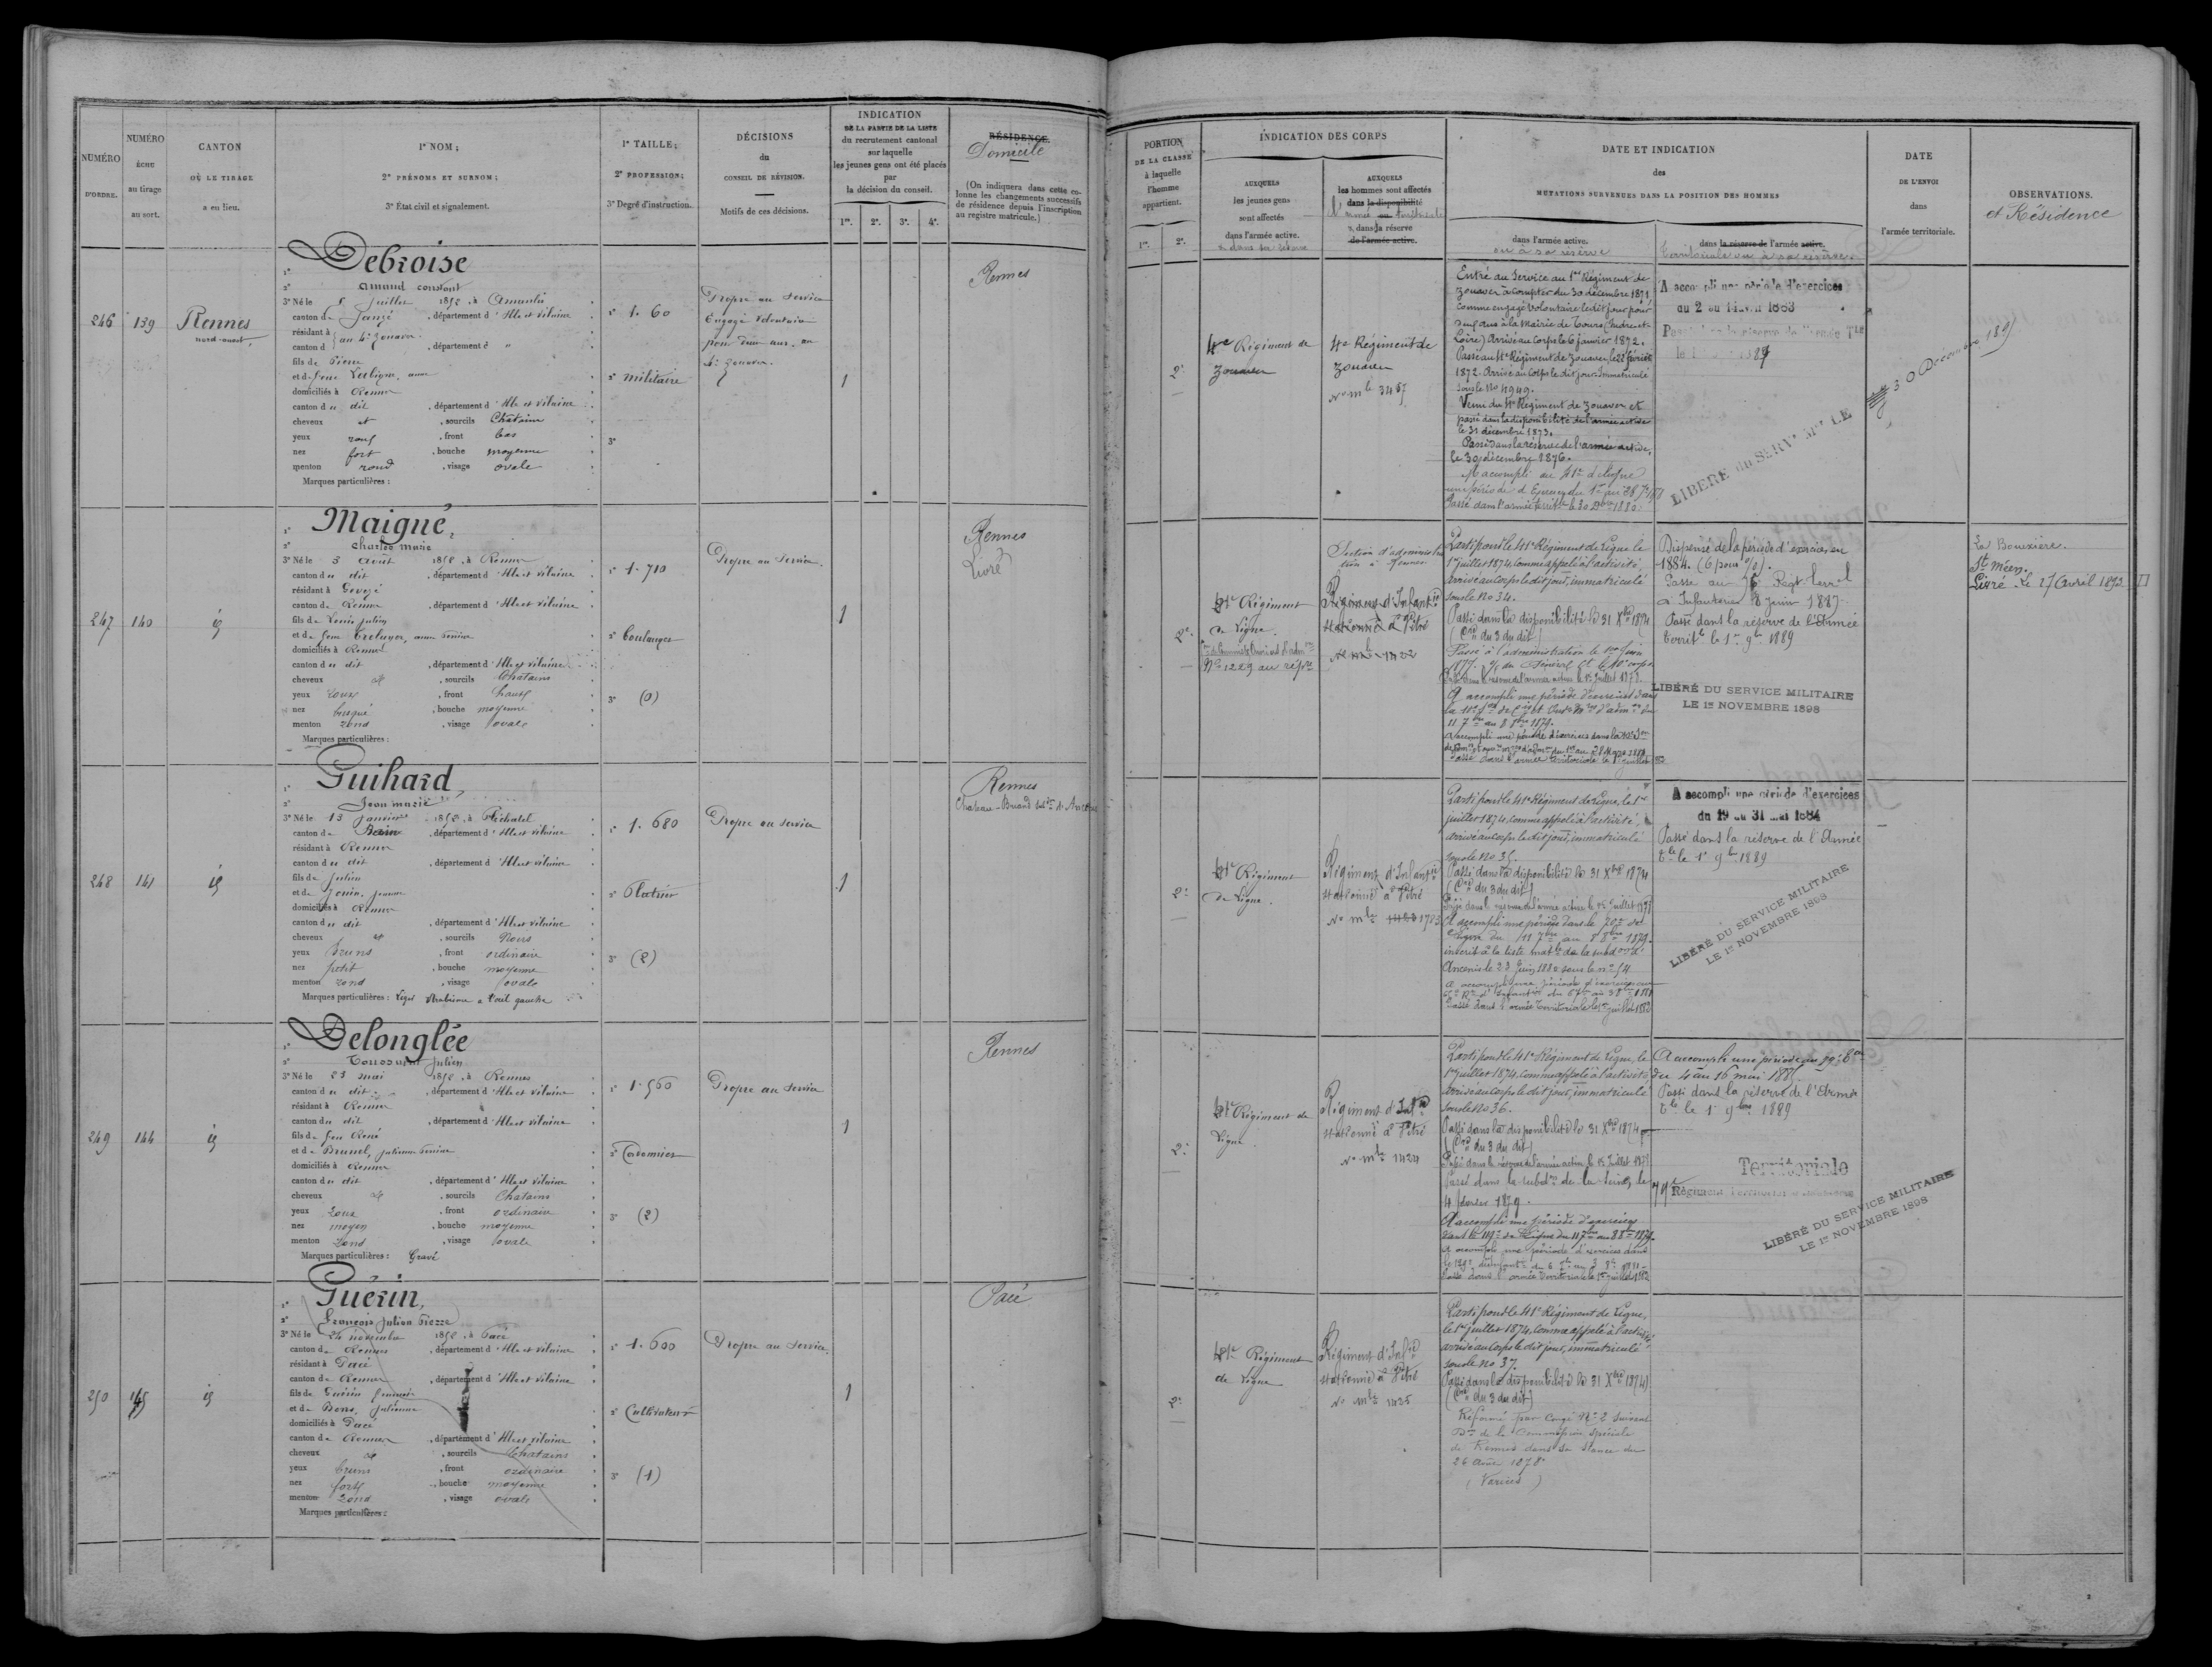 NUMÉRO
D'ORDRE.
NUMÉRO
ÉCHU
au tirage
au sort.
CANTON
OÙ LE TIRAGE
a eu lieu.
1° NOM;
2° PRÉNOMS ET SURNOM;
3° État civil et signalement.
1° TAILLE;
2° PROFESSION;
3° Degré d'instruction.
DÉCISIONS
du
CONSEIL DE RÉVISION.
Motifs de ces décisions.
INDICATION
DE LA PARTIE DE LA LISTE
du recrutement cantonal
sur laquelle
les jeunes gens ont été placés
par
la décision du conseil.
1re. 2e. 3e. 4e.
RÉSIDENCE.
Domicile
(On indiquera dans cette co-
lonne les changements successifs
de résidence depuis l'inscription
au registre matricule.)
246
139
Rennes
nord-ouest
1° Debroise
2° Amand constant
3° Né le 5 Juillet 1851, à Amanlis
canton de Janzé, département d'Ille et vilaine
résidant à au 4e Zouaves
canton d , département d "
fils de Pierre
et de feue
domiciliés à Rennes
canton du dit, département d'Ille et vilaine
cheveux et, sourcils Chatains
yeux roux, front bas
nez fort, bouche moyenne
menton rond, visage ovale
Marques particulières :
1° 1.60
2° militaire
3°
Propre au Service
Engagé Volontaire
pour deux ans, au
4e Zouaves.
1
Rennes
247
140
id
1° Maigné,
2° Charles Marie
3° Né le 3 Août 1851, à Rennes
canton du dit, département d'Ille et vilaine
résidant à Gevezé
canton de Rennes, département d'Ille et vilaine
fils de Louis julien
et de feue Treluyer, anne
domiciliés à Rennes
canton du dit, département d'Ille et vilaine
cheveux et, sourcils Chatains
yeux roux, front haut
nez busqué, bouche moyenne
menton rond, visage ovale
Marques particulières :
1° 1.710
2° boulanger
3° (0)
Propre au Service.
1
Rennes
Livré
248
141
id
1° Guihard,
2° Jean marie
3° Né le 13 janvier 1851, à Pléchatel
canton de Bain, département d'Ille et vilaine
résidant à Rennes
canton du dit, département d'Ille et vilaine
fils de Julien
et de Jouin, jeanne
domiciliés à Rennes
canton du dit, département d'Ille et vilaine
cheveux et, sourcils Noirs
yeux Bruns, front ordinaire
nez petit, bouche moyenne
menton rond, visage ovale
Marques particulières : Léger strabisme a l'œil gauche
1° 1.680
2° Platrier
3° (2)
Propre au service
1
Rennes
249
144
id
1° Delonglée
2° Toussaint Julien
3° Né le 23 mai 1851, à Rennes
canton du dit, département d'Ille et vilaine
résidant à Rennes
canton du dit, département d'Ille et vilaine
fils de feu René
et de Brunel, julienne
domiciliés à Rennes
canton du dit, département d'Ille et vilaine
cheveux et, sourcils Chatains
yeux roux, front ordinaire
nez moyen, bouche moyenne
menton rond, visage ovale
Marques particulières : Gravé
1° 1.560
2° Cordonnier
3° (2)
Propre au Service
1
Rennes
250
145
id
1° Guérin,
2° François Julien Pierre
3° Né le 24 novembre 1851, à Pacé
canton de Rennes, département d'Ille et vilaine
résidant à Pacé
canton de Rennes, département d'Ille et vilaine
fils de Guérin
et de Bons, Julienne
domiciliés à Pacé
canton de Rennes, département d'Ille et vilaine
cheveux et, sourcils Chatains
yeux bruns, front ordinaire
nez fort, bouche moyenne
menton rond, visage ovale
Marques particulières :
1° 1.600
2° Cultivateur
3° (1)
Propre au Service.
1
Pacé
PORTION
DE LA CLASSE
à laquelle
l'homme
appartient.
1re. 2e.
INDICATION DES CORPS
AUXQUELS
les jeunes gens
sont affectés
dans l'armée active.
AUXQUELS
les hommes sont affectés
dans la disponibilité
dans la réserve
de l'armée active.
DATE ET INDICATION
des
MUTATIONS SURVENUES DANS LA POSITION DES HOMMES
dans l'armée active.
ou à sa réserve
dans la réserve de l'armée active.
territoriale ou à sa réserve.
DATE
DE L'ENVOI
dans
l'armée territoriale.
OBSERVATIONS.
et Résidence
2e
4e Régiment de
Zouaves
4e Régiment de
Zouaves
No mle 3467
Entré au Service au 1er Régiment de
Zouaves à compter du 30 décembre 1871
comme engagé volontaire ledit jour pour
deux ans à la Mairie de Tours (Indre-et-
Loire) Arrivé au corps le 6 janvier 1872.
Passé au 4e Régiment de Zouaves, le 22 février
1872. Arrivé au Corps le dit jour. Immatriculé
sous le No 4949.
Venu du 4e Régiment de Zouaves et
passé dans la disponibilité de l'armée active
le 31 décembre 1873.
Passé dans la réserve de l'armée active,
le 30 décembre 1876.
A accompli au 41e de ligne
Passé dans l'armée territle le 30 Xbre 1880.
A accompli une période d'exercices
du 2 au 14 avril 1883
LIBÉRÉ du SERVce MLre LE
30 Décembre 189
2e
41e Régiment
de Ligne.
No 1229 au rép.
Section d'administra
tion à Rennes
Régiment d'Infantie
stationné à Vitré
No mle 1422
Parti pour le 41e Régiment de Ligne le
1er juillet 1874, comme appelé à l'activité,
arrivé au corps le dit jour, immatriculé
sous le No 34.
Passé dans la disponibilité le 31 Xbre 1874
(Cre du 3 du dit)
Passé à l'administration le 1er Juin
1877.
Passé dans la réserve de l'armée active le 1er Juillet 1878.
A accompli une période d'exercices dans
11 7bre au 8 8bre 1879.
Passé dans l'armée territoriale le 1er juillet
Dispensé de la période d'exercices en
1884. (6 pour %).
Passé au Régt terral
d'Infanterie 8 Juin 1887.
Passé dans la réserve de l'Armée
Territle le 1er 9bre 1889
LIBÉRÉ DU SERVICE MILITAIRE
LE 1er NOVEMBRE 1898
La Bouëxière.
St Méen.
Livré le 27 Avril 1892
2e
41e Régiment
de Ligne.
Régiment d'Infantie
stationné à Vitré
No mle 1783
Parti pour le 41e Régiment de Ligne, le 1er
juillet 1874, comme appelé à l'activité,
arrivé au corps le dit jour, immatriculé
sous le No 35.
Passé dans la disponibilité le 31 Xbre 1874
(Cre du 3 du dit)
Passé dans la réserve de l'armée active le 1er Juillet 1878
A accompli une période dans le 70e de
Ligne du 11 7bre au 8 8bre 1879.
inscrit à la liste matle de la subdon d'
Ancenis le 23 Juin 1880 sous le no 54
Passé dans l'armée Territoriale le 1er juillet 1882
A accompli une période d'exercices
du 19 au 31 mai 1884
Passé dans la réserve de l'Armée
Tle le 1er 9bre 1889
LIBÉRÉ DU SERVICE MILITAIRE
LE 1er NOVEMBRE 1898
2e
41e Régiment de
Ligne
Régiment d'Infie
stationné à Vitré
No mle 1424
Parti pour le 41e Régiment de Ligne, le
1er juillet 1874, comme appelé à l'activité,
arrivé au corps le dit jour, immatriculé
sous le No 36.
Passé dans la disponibilité le 31 Xbre 1874
(Cre du 3 du dit)
Passé dans la réserve de l'armée active le 1er Juillet 1878
Passé dans la subdon de la Seine, le
4 février 1879.
A accompli une période d'exercices
dans le 119e de Ligne du 11 7bre au 8 8bre 1879.
Passé dans l'armée Territoriale le 1er juillet 1882
A accompli une période au 79e
du 4 au 16 mai 1885.
Passé dans la réserve de l'Armée
Tle le 1er 9bre 1889
Territoriale
79e Régiment Territorial d'Infanterie
LIBÉRÉ DU SERVICE MILITAIRE
LE 1er NOVEMBRE 1898
2e
41e Régiment
de Ligne
Régiment d'Infie
stationné à Vitré
No mle 1425
Parti pour le 41e Régiment de Ligne,
le 1er juillet 1874, comme appelé à l'activité,
arrivé au corps le dit jour, immatriculé
sous le No 37.
Passé dans la disponibilité le 31 Xbre 1874
(Cre du 3 du dit)
Réformé par Congé No 2 suivant
Don de la Commission spéciale
de Rennes dans sa séance du
26 Août 1878
(Varices)